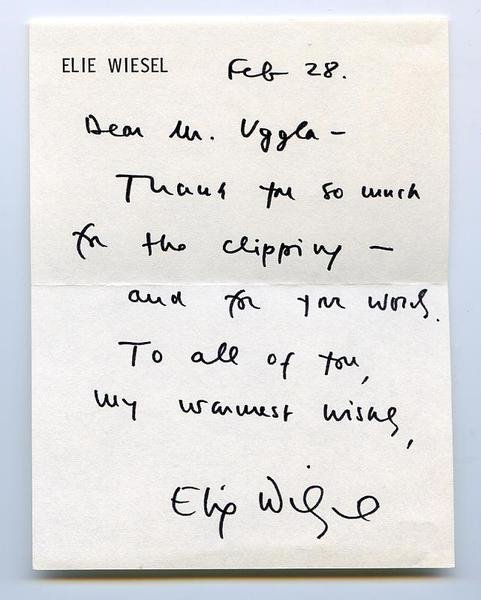 ELIE WIESEL Feb 28.
Dear Mr. Uggla –
Thank you so much
for the clipping –
and for your words.
To all of you,
my warmest wishes,
Elie Wiesel